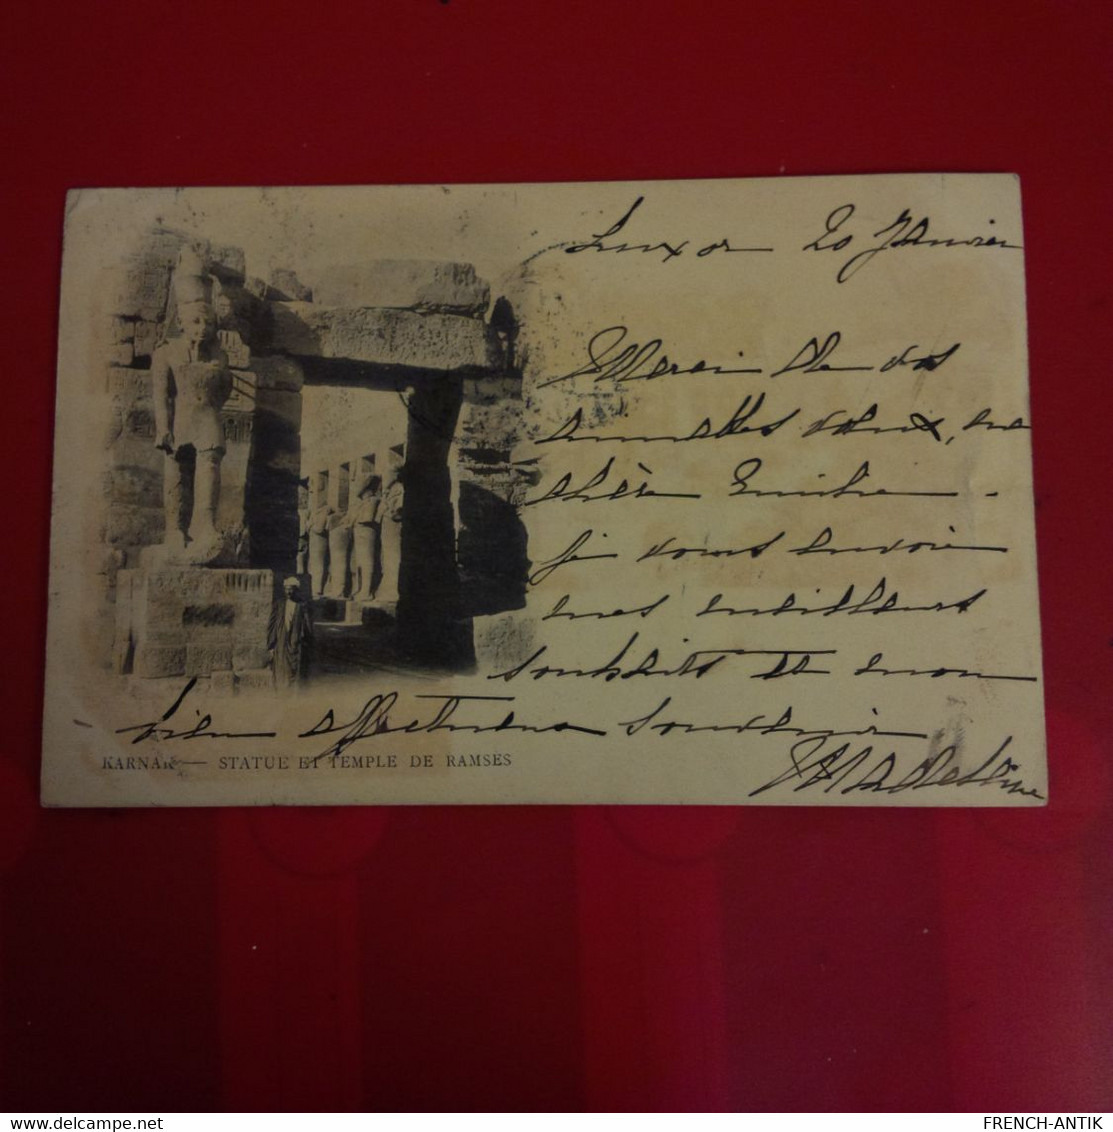 Luxor 20 Janvier
Merci de vos
aimables vœux, ma
chère Emilie -
je vous envoie
mes meilleurs
souhaits et mon
bien affectueux souvenir
Madeleine
KARNAK — STATUE ET TEMPLE DE RAMSÈS
FRENCH-ANTIK